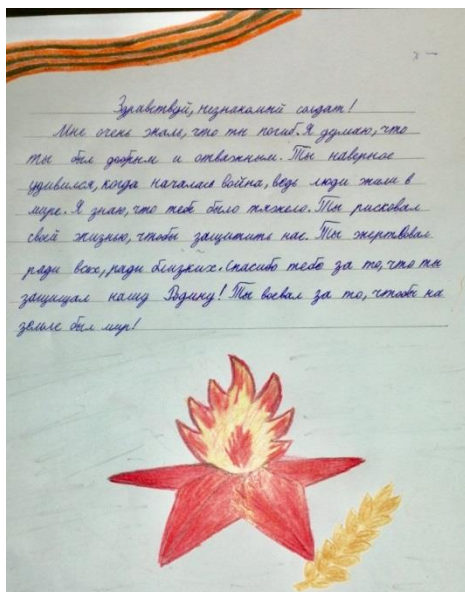 Здравствуй, незнакомый солдат!
Мне очень жаль, что ты погиб. Я думаю, что
ты был добрым и отважным. Ты наверное
удивился, когда началась война, ведь люди жили в
мире. Я знаю, что тебе было тяжело. Ты рисковал
своей жизнью, чтобы защитить нас. Ты жертвовал
ради всех, ради близких. Спасибо тебе за то, что ты
защищал нашу Родину! Ты воевал за то, чтобы на
земле был мир!